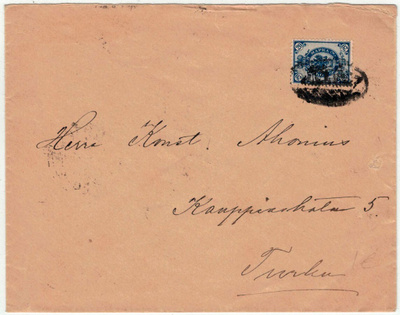 Herra Konst. Ahonius
Kauppiaskatu 5.
Turku